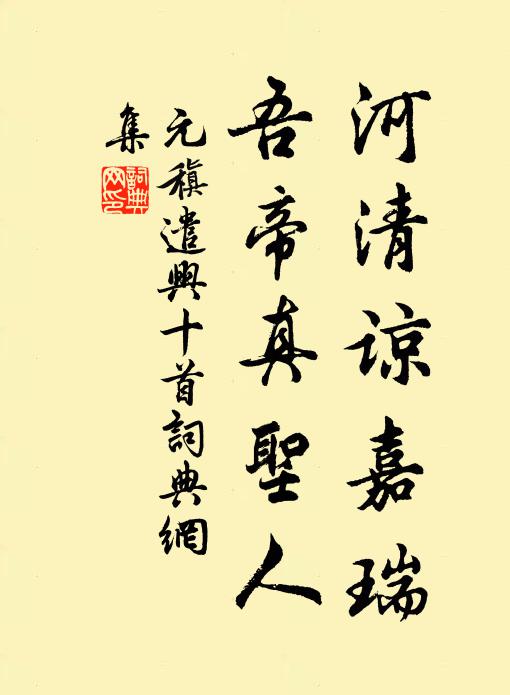 河清諒嘉瑞
吾帝真聖人
元稹遣興十首詞典網
集
詞典
网印